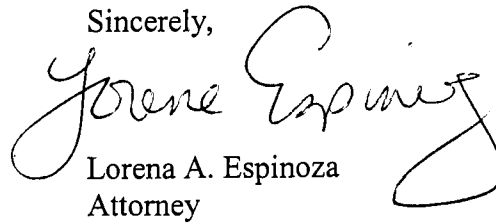 Sincerely,
Lorena Espinoza
Lorena A. Espinoza
Attorney